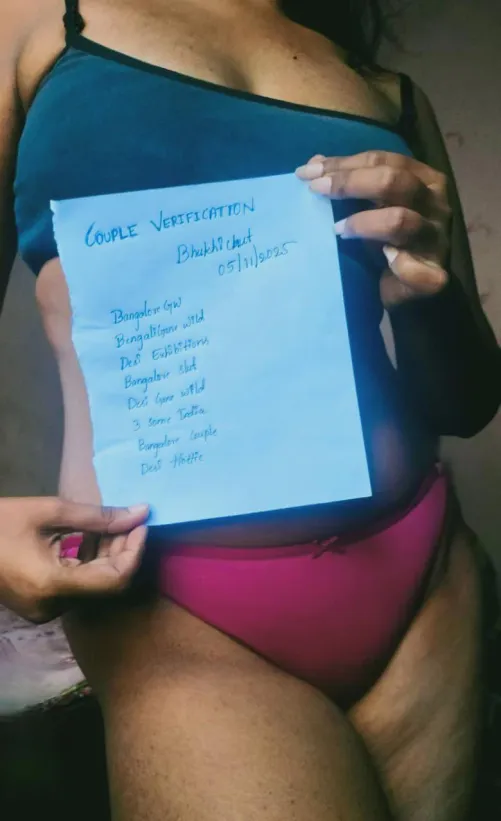 COUPLE VERIFICATION
Bhukhi chut
05/11/2025
Bangalore GW
Bengali Gone wild
Desi Exhibitions
Bangalore slut
Desi Gone wild
3 some India
Bangalore Couple
Desi Hottie